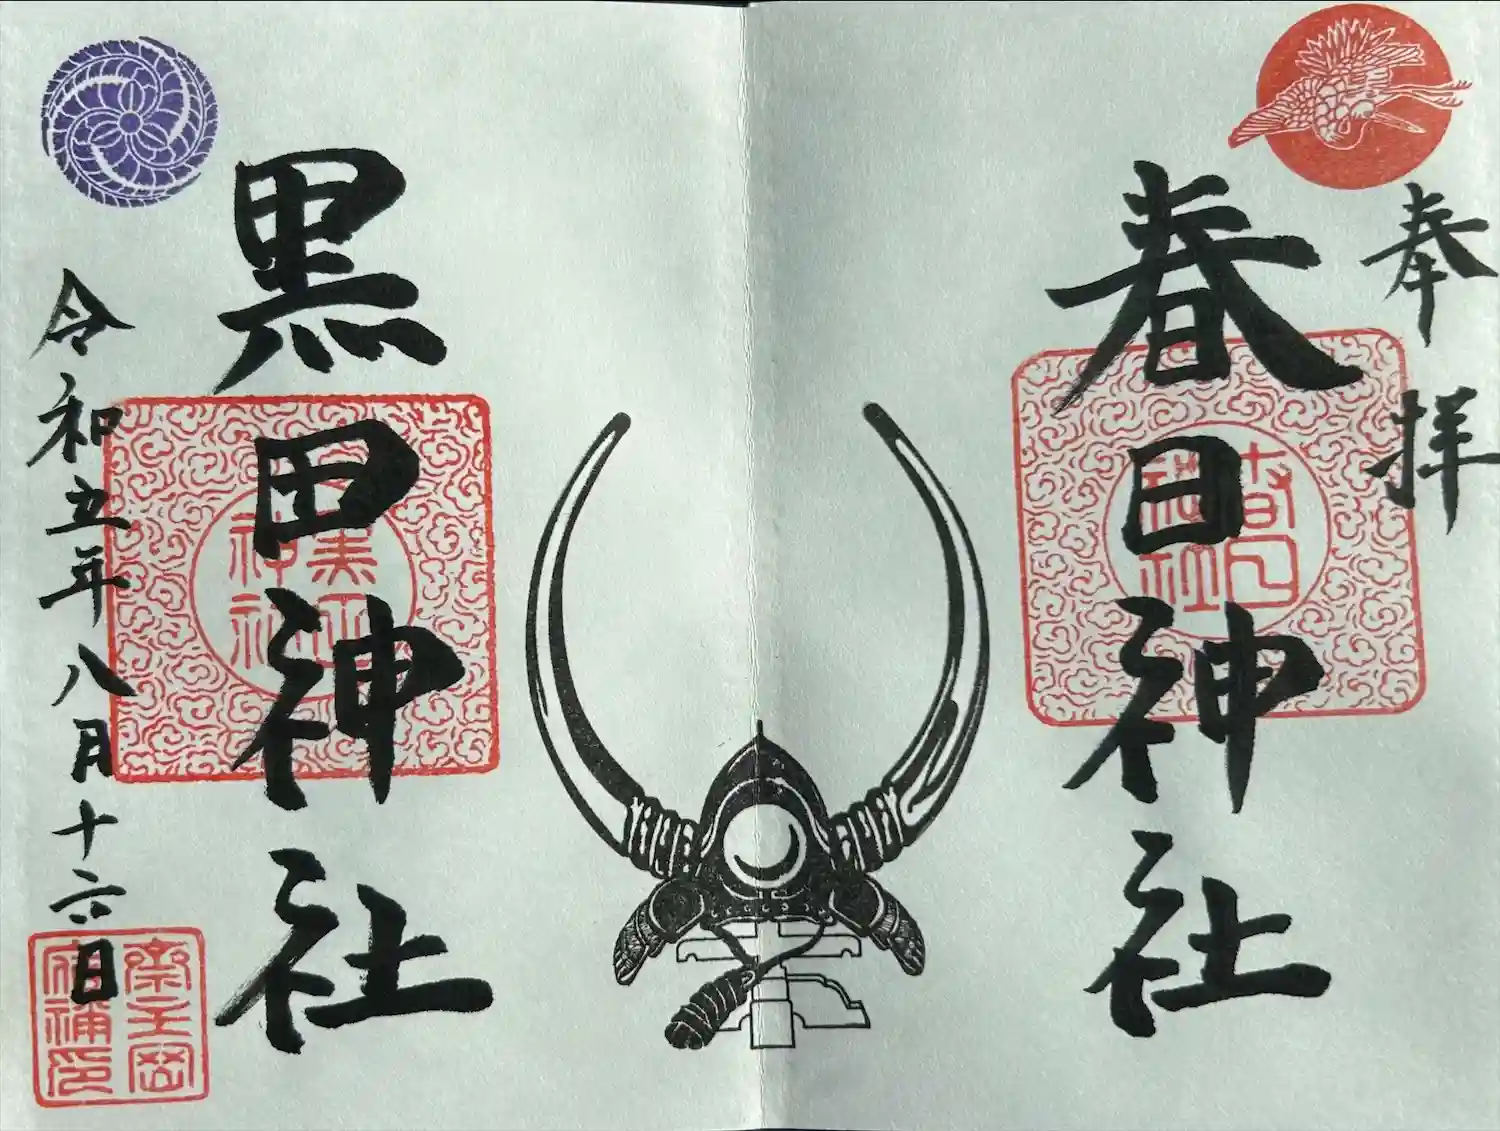 奉拝
春日神社
春日神社
黒田神社
黒田神社
令和五年八月十六日